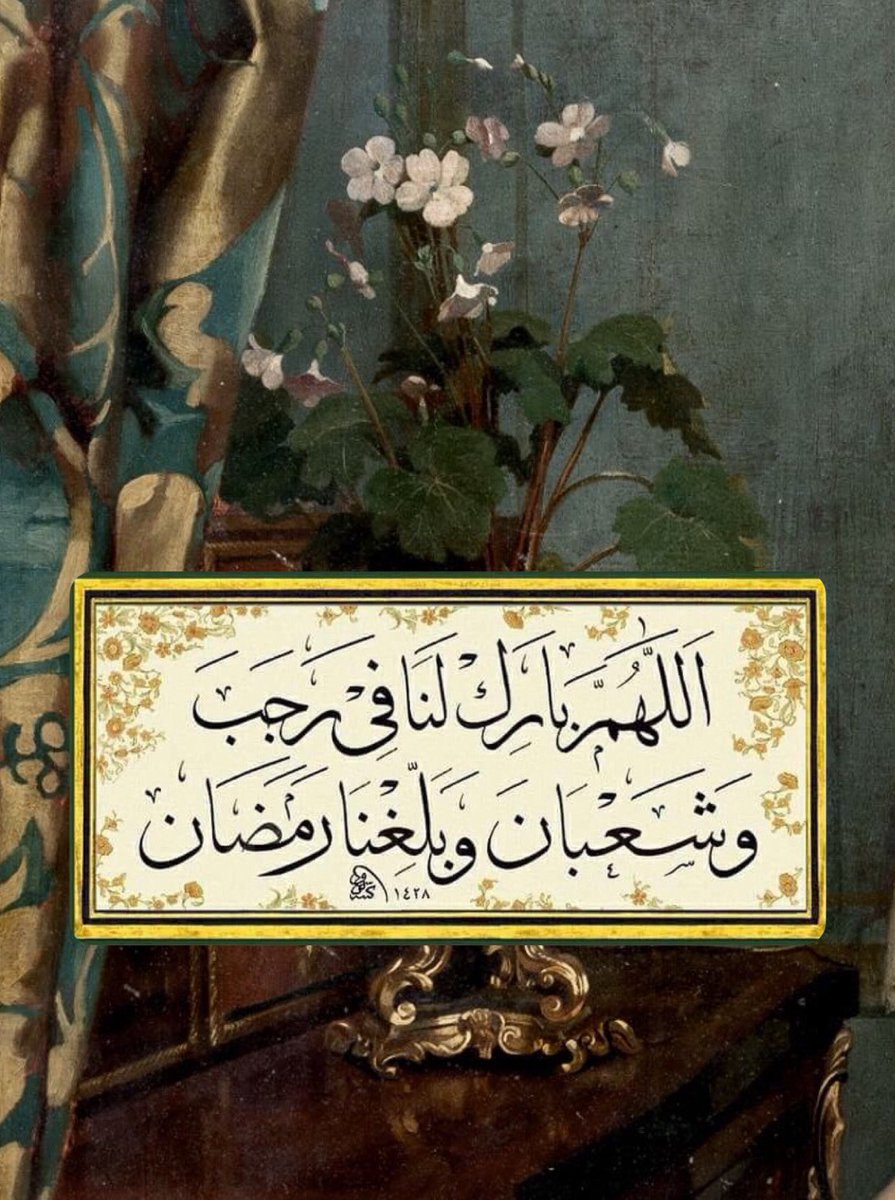 اَللّٰهُمَّ بَارِكْ لَنَا فِى رَجَبَ
وَشَعْبَانَ وَبَلِّغْنَا رَمَضَان
١٤٢٨